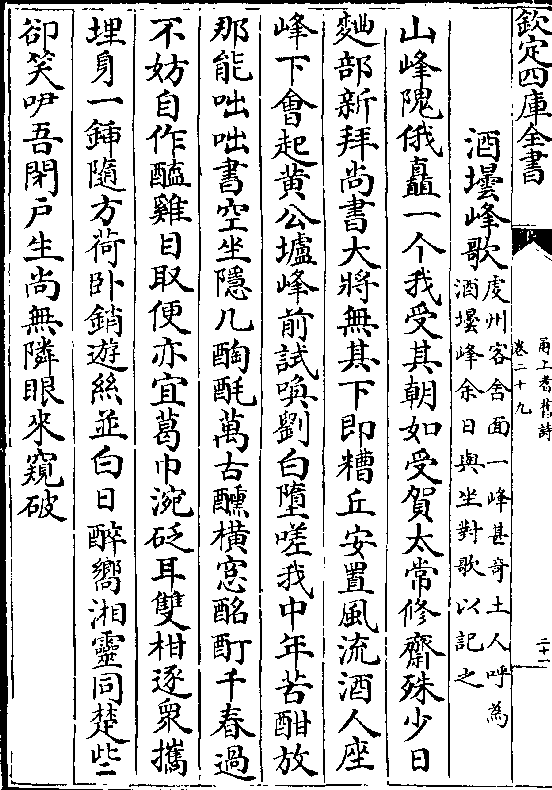 欽定四庫全書
甬上耆舊詩
卷二十九
二十一
酒壜峰歌
䖍州客舍面一峰甚奇土人呼為
酒壜峰余日與坐對歌以記之
山峰隗俄矗一个我受其朝如受賀太常修齋殊少日
麯部新拜尚書大將無其下即糟丘安置風流酒人座
峰下會起黄公壚峰前試喚劉白墮嗟我中年苦酣放
那能咄咄書空坐隱几酶酕萬古醺橫窓酩酊千春過
不妨自作醯雞目取便亦宜葛巾涴砭耳雙柑逐衆攜
埋身一鍤隨方荷卧銷遊絲並白日醉嚮湘靈同楚些
卻笑吚吾閉戶生尚無隣眼來窺破